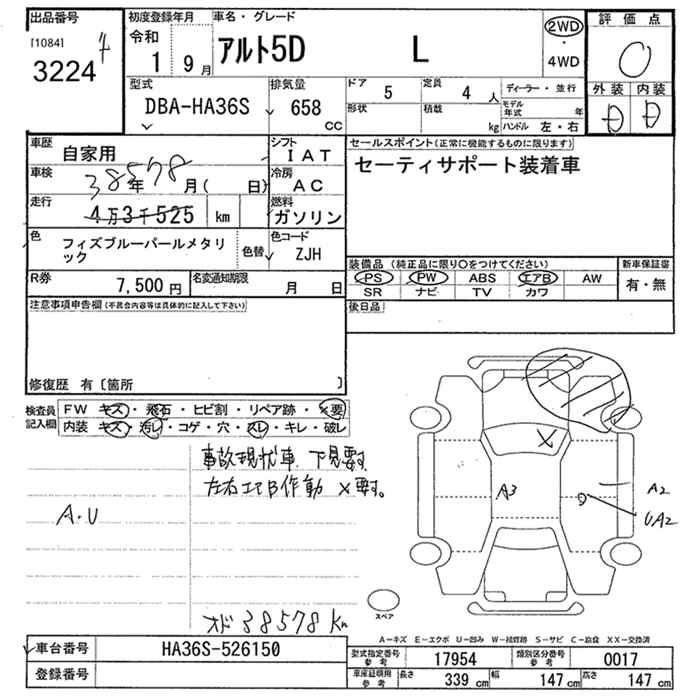 出品番号
[1084]
3224
初度登録年月
令和
1 9月
車名・グレード
アルト5D L
2WD
・
4WD
評価点
0
外装 内装
D D
型式
DBA-HA36S
排気量
658
CC
ドア 5
定員 4 人
ディーラー・並行
形状
積載 kg
モデル年式 年
ハンドル 左・右
車歴
自家用
シフト
IAT
車検
年 月( 日)
冷房
AC
走行
38578
4万3千525 km
燃料
ガソリン
色
フィズブルーパールメタリ
ック
色替
色コード
ZJH
R券 7,500 円
名変通知期限 月 日
セールスポイント(正常に機能するものに限ります)
セーティサポート装着車
装備品 (純正品に限り○をつけてください)
PS PW ABS エアB AW
SR ナビ TV カワ
新車保証書
有・無
後日品
注意事項申告欄(不具合内容等は具体的に記入して下さい)
修復歴 有〔箇所 〕
検査員
記入欄
FW キズ・飛石・ヒビ割・リペア跡・×要
内装 キズ・汚レ・コゲ・穴・スレ・キレ・破レ
事故現状車 下見要す
左右エアB作動 ×要す。
A・U
X
A3
A2
UA2
オド 38578 Km
スペア
A-キズ E-エクボ U-凹み W-補修跡 S-サビ C-腐食 XX-交換済
車台番号 HA36S-526150
登録番号
型式指定番号
参考
17954
類別区分番号
参考
0017
車庫証明用
参考
長さ 339 cm
幅 147 cm
高さ 147 cm